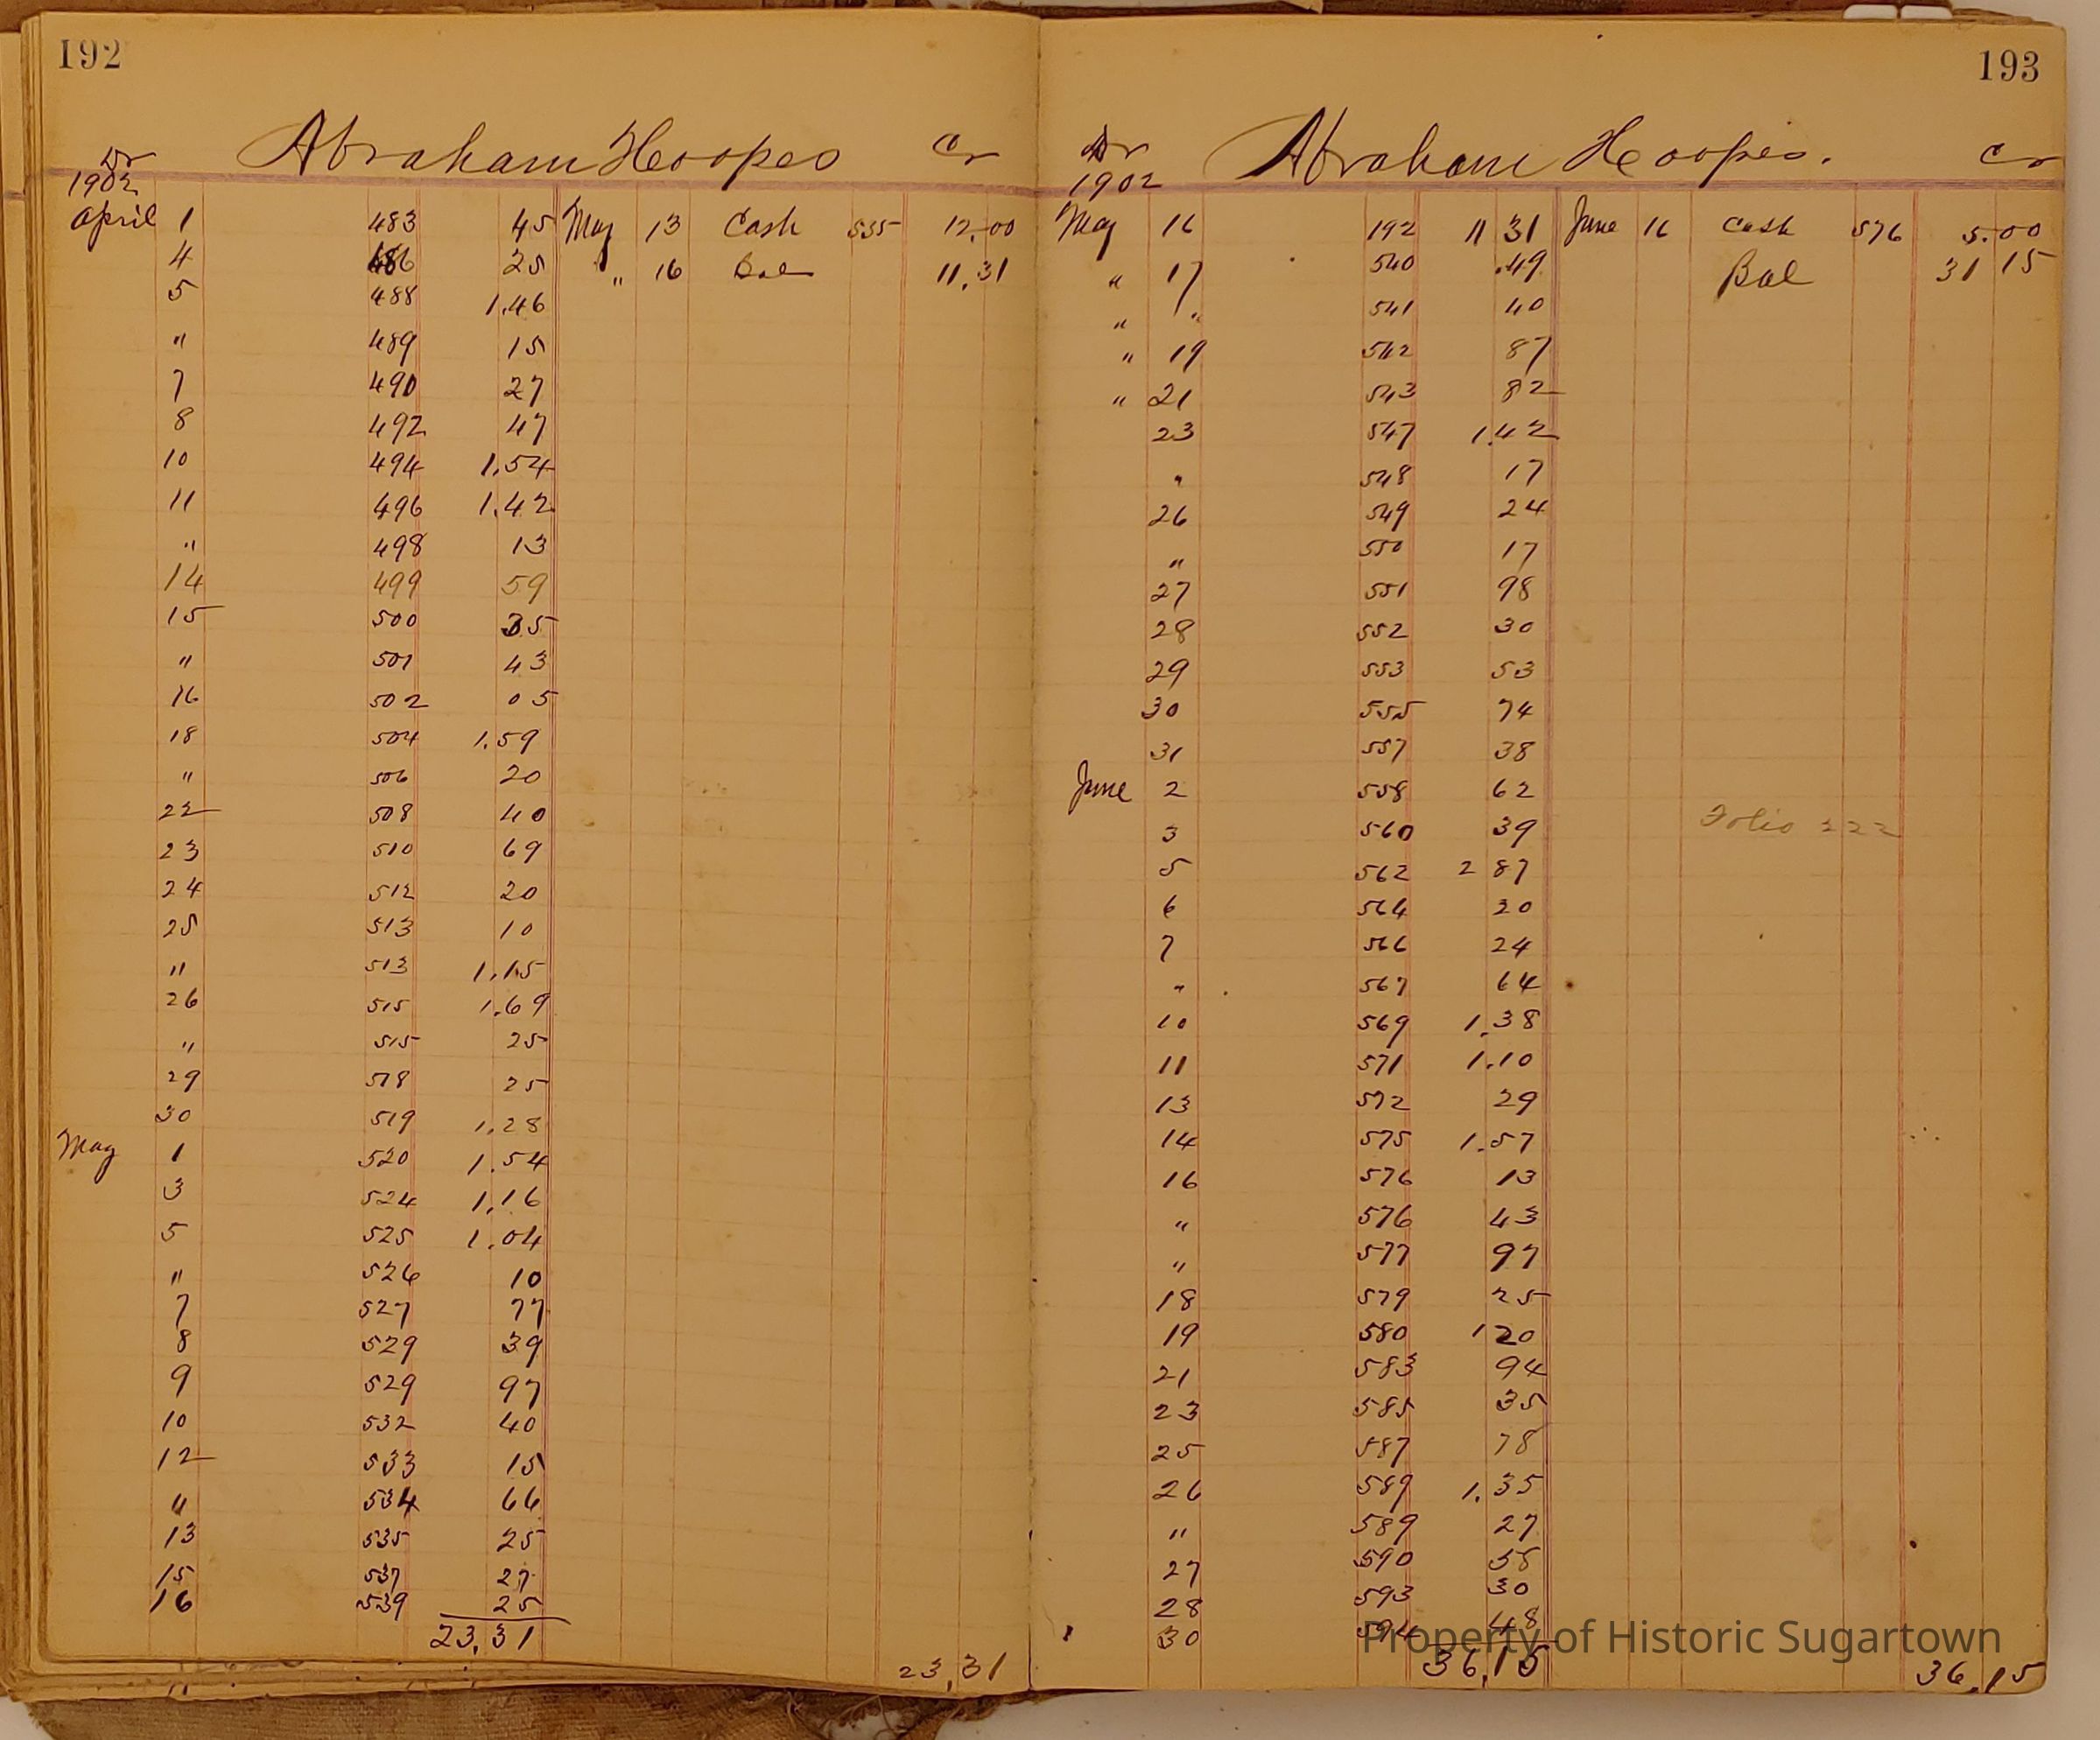 192
Dr Abraham Hoopes Cr
1902
April 1 483 45 May 13 Cash 535 12.00
4 486 25 " 16 Bal 11.31
5 488 1.46
" 489 15
7 490 27
8 492 47
10 494 1.54
11 496 1.42
" 498 13
14 499 59
15 500 35
" 501 43
16 502 05
18 504 1.59
" 506 20
22 508 40
23 510 69
24 512 20
25 513 10
" 513 1.15
26 515 1.69
" 515 25
29 518 25
30 519 1.28
May 1 520 1.54
3 524 1.16
5 525 1.04
" 526 10
7 527 77
8 529 39
9 529 97
10 532 40
12 533 15
" 534 66
13 535 25
15 537 27
16 539 25
23.31
23.31
193
Dr Abraham Hoopes. Cr
1902
May 16 192 11 31 June 16 Cash 576 5.00
" 17 540 .49 Bal 31 15
" " 541 40
" 19 542 87
" 21 543 82
23 547 1.42
" 548 17
26 549 24
" 550 17
27 551 98
28 552 30
29 553 53
30 555 74
31 557 38
June 2 558 62
3 560 39 Folio 222
5 562 2 87
6 564 20
7 566 24
" 567 64
10 569 1.38
11 571 1.10
13 572 29
14 575 1.57
16 576 13
" 576 43
" 577 97
18 579 25
19 580 1 20
21 583 94
23 585 35
25 587 78
26 589 1.35
" 589 27
27 590 58
28 593 30
30 594 48
36.15
36.15
Property of Historic Sugartown